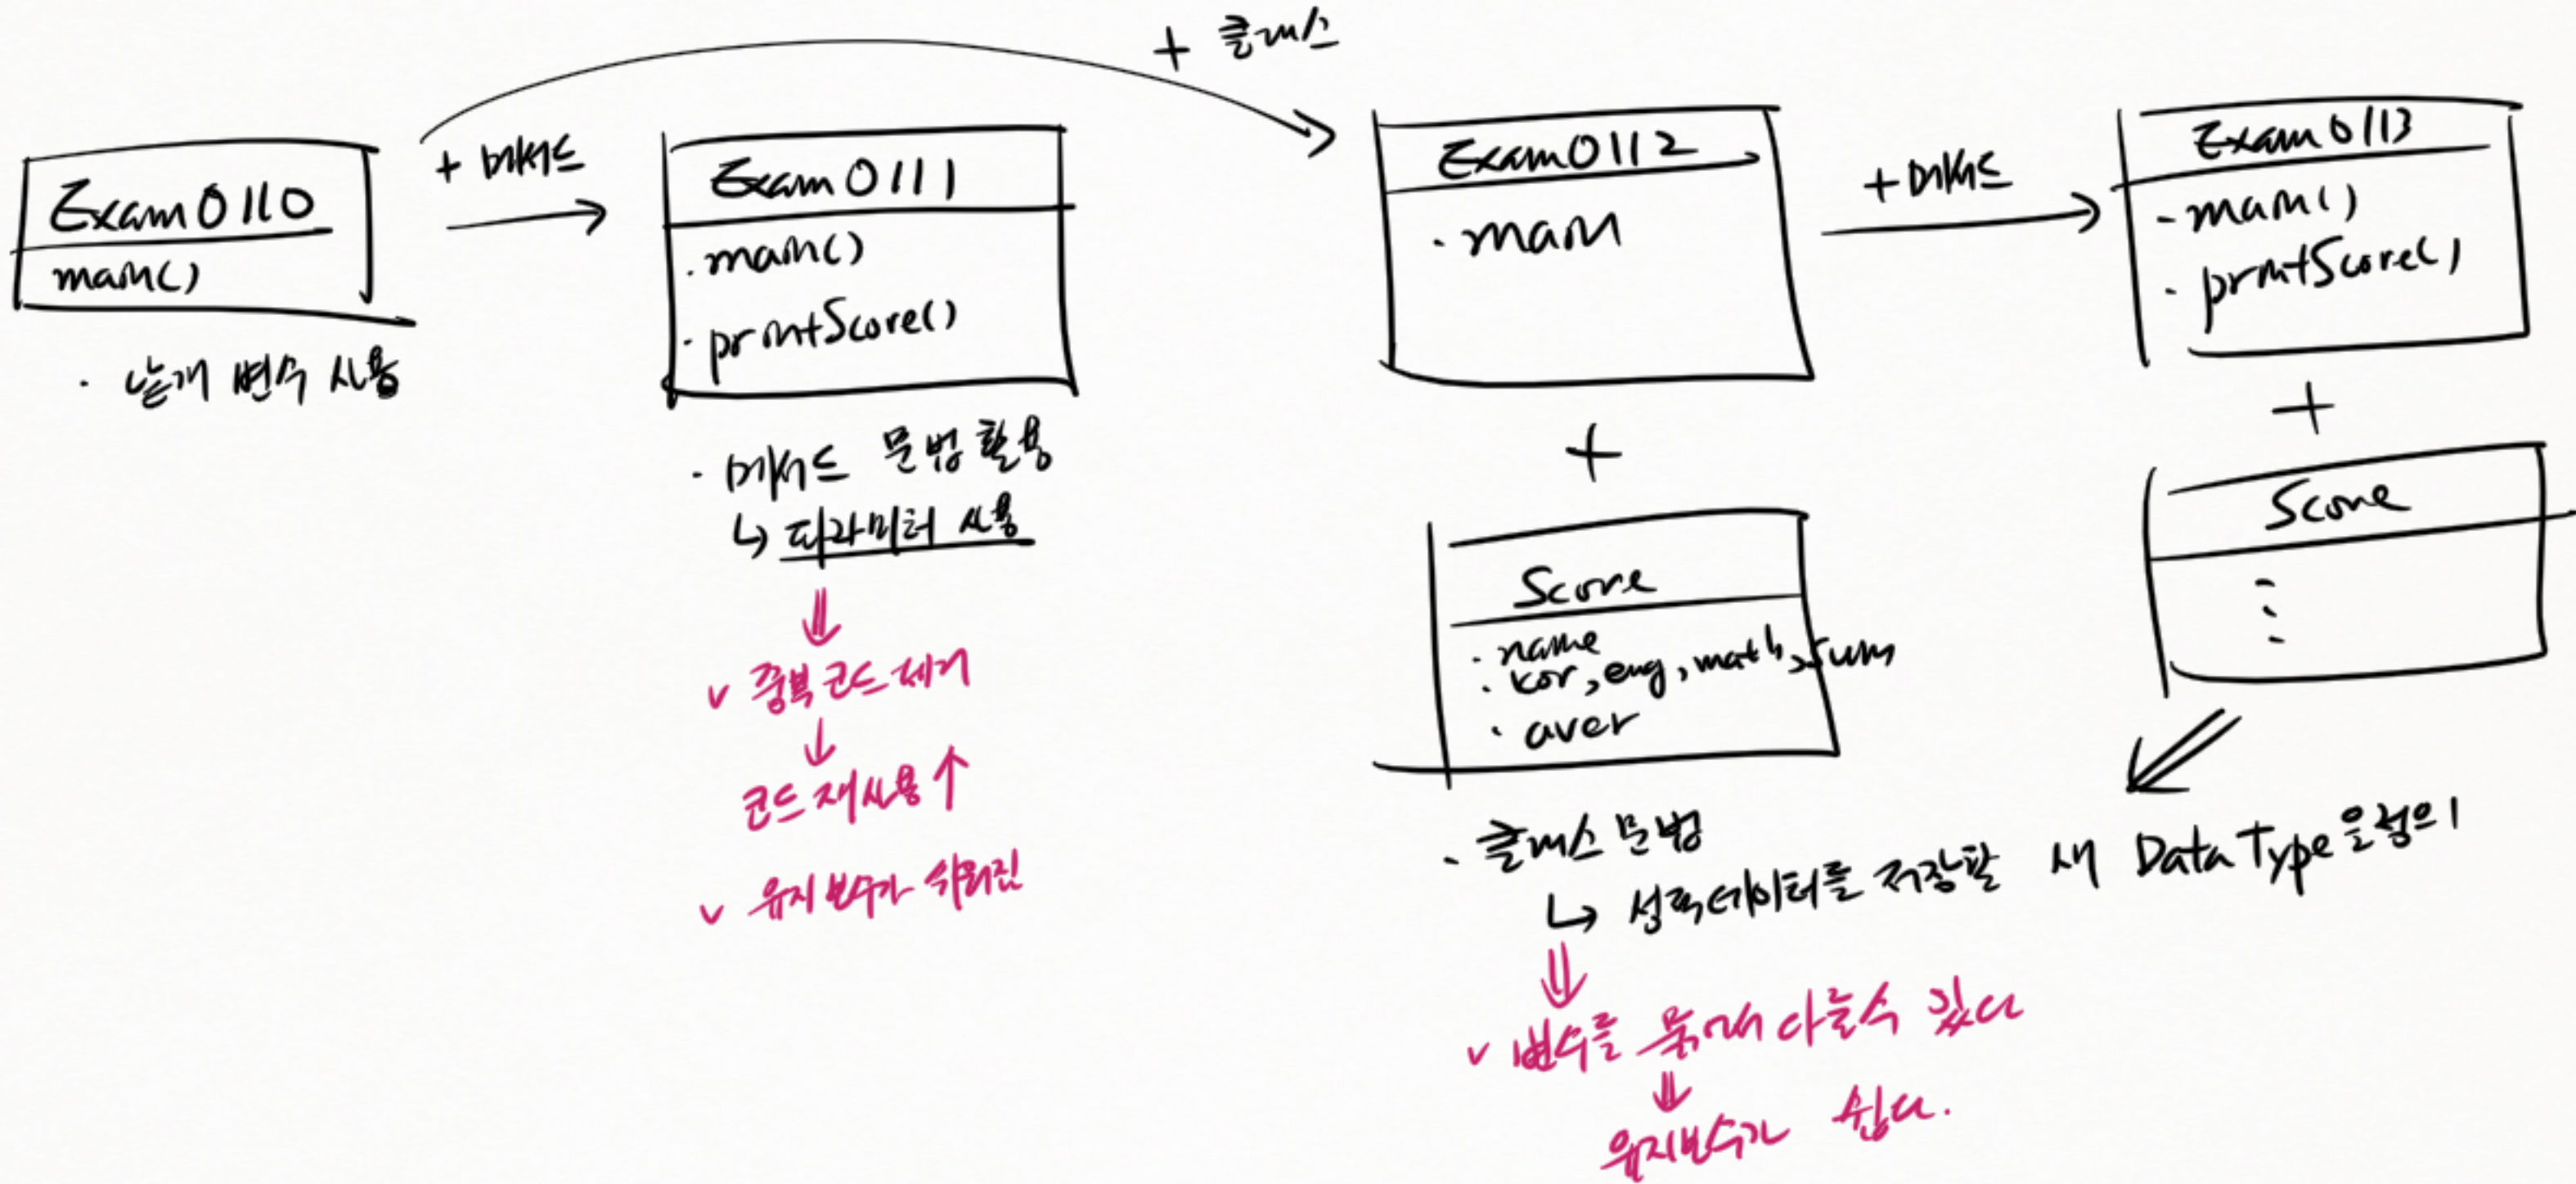 + 클래스
Exam0110
main()
· 낱개 변수 사용
+ 메서드
Exam0111
· main()
· printScore()
· 메서드 문법 활용
↳ 파라미터 사용
✓ 중복 코드 제거
코드 재사용 ↑
✓ 유지보수가 쉬워진
Exam0112
· main
+
Score
· name
· kor, eng, math, sum
· aver
· 클래스 문법
↳ 성적데이터를 저장할 새 Data Type을 정의
✓ 변수를 묶어서 다룰수 있다
유지보수가 쉽다.
+ 메서드
Exam0113
- main()
- printScore()
+
Score